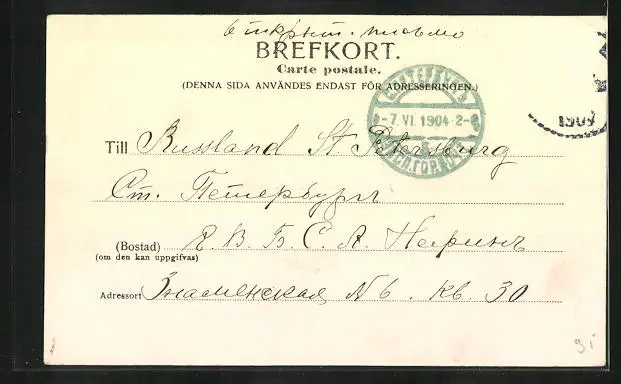 открыт. письмо
BREFKORT.
Carte postale.
(DENNA SIDA ANVÄNDES ENDAST FÖR ADRESSERINGEN.)
-7.VI.1904-2-
1904
Till Russland St Petersburg
Ст. Петербургъ
(Bostad) Е. В. Б. С. А.
(om den kan uppgifvas)
Adressort Знаменская № 6. кв. 30